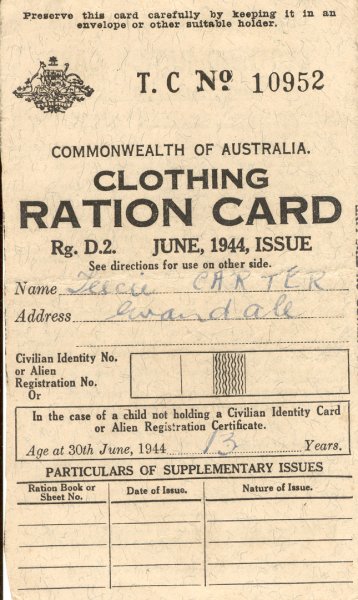 Preserve this card carefully by keeping it in an
envelope or other suitable holder.
T. C No. 10952
COMMONWEALTH OF AUSTRALIA.
CLOTHING
RATION CARD
Rg. D.2. JUNE, 1944, ISSUE
See directions for use on other side.
Name CARTER
Address
Civilian Identity No.
or Alien
Registration No.
Or
In the case of a child not holding a Civilian Identity Card
or Alien Registration Certificate.
Age at 30th June, 1944 13 Years.
PARTICULARS OF SUPPLEMENTARY ISSUES
Ration Book or
Sheet No.
Date of Issue.
Nature of Issue.